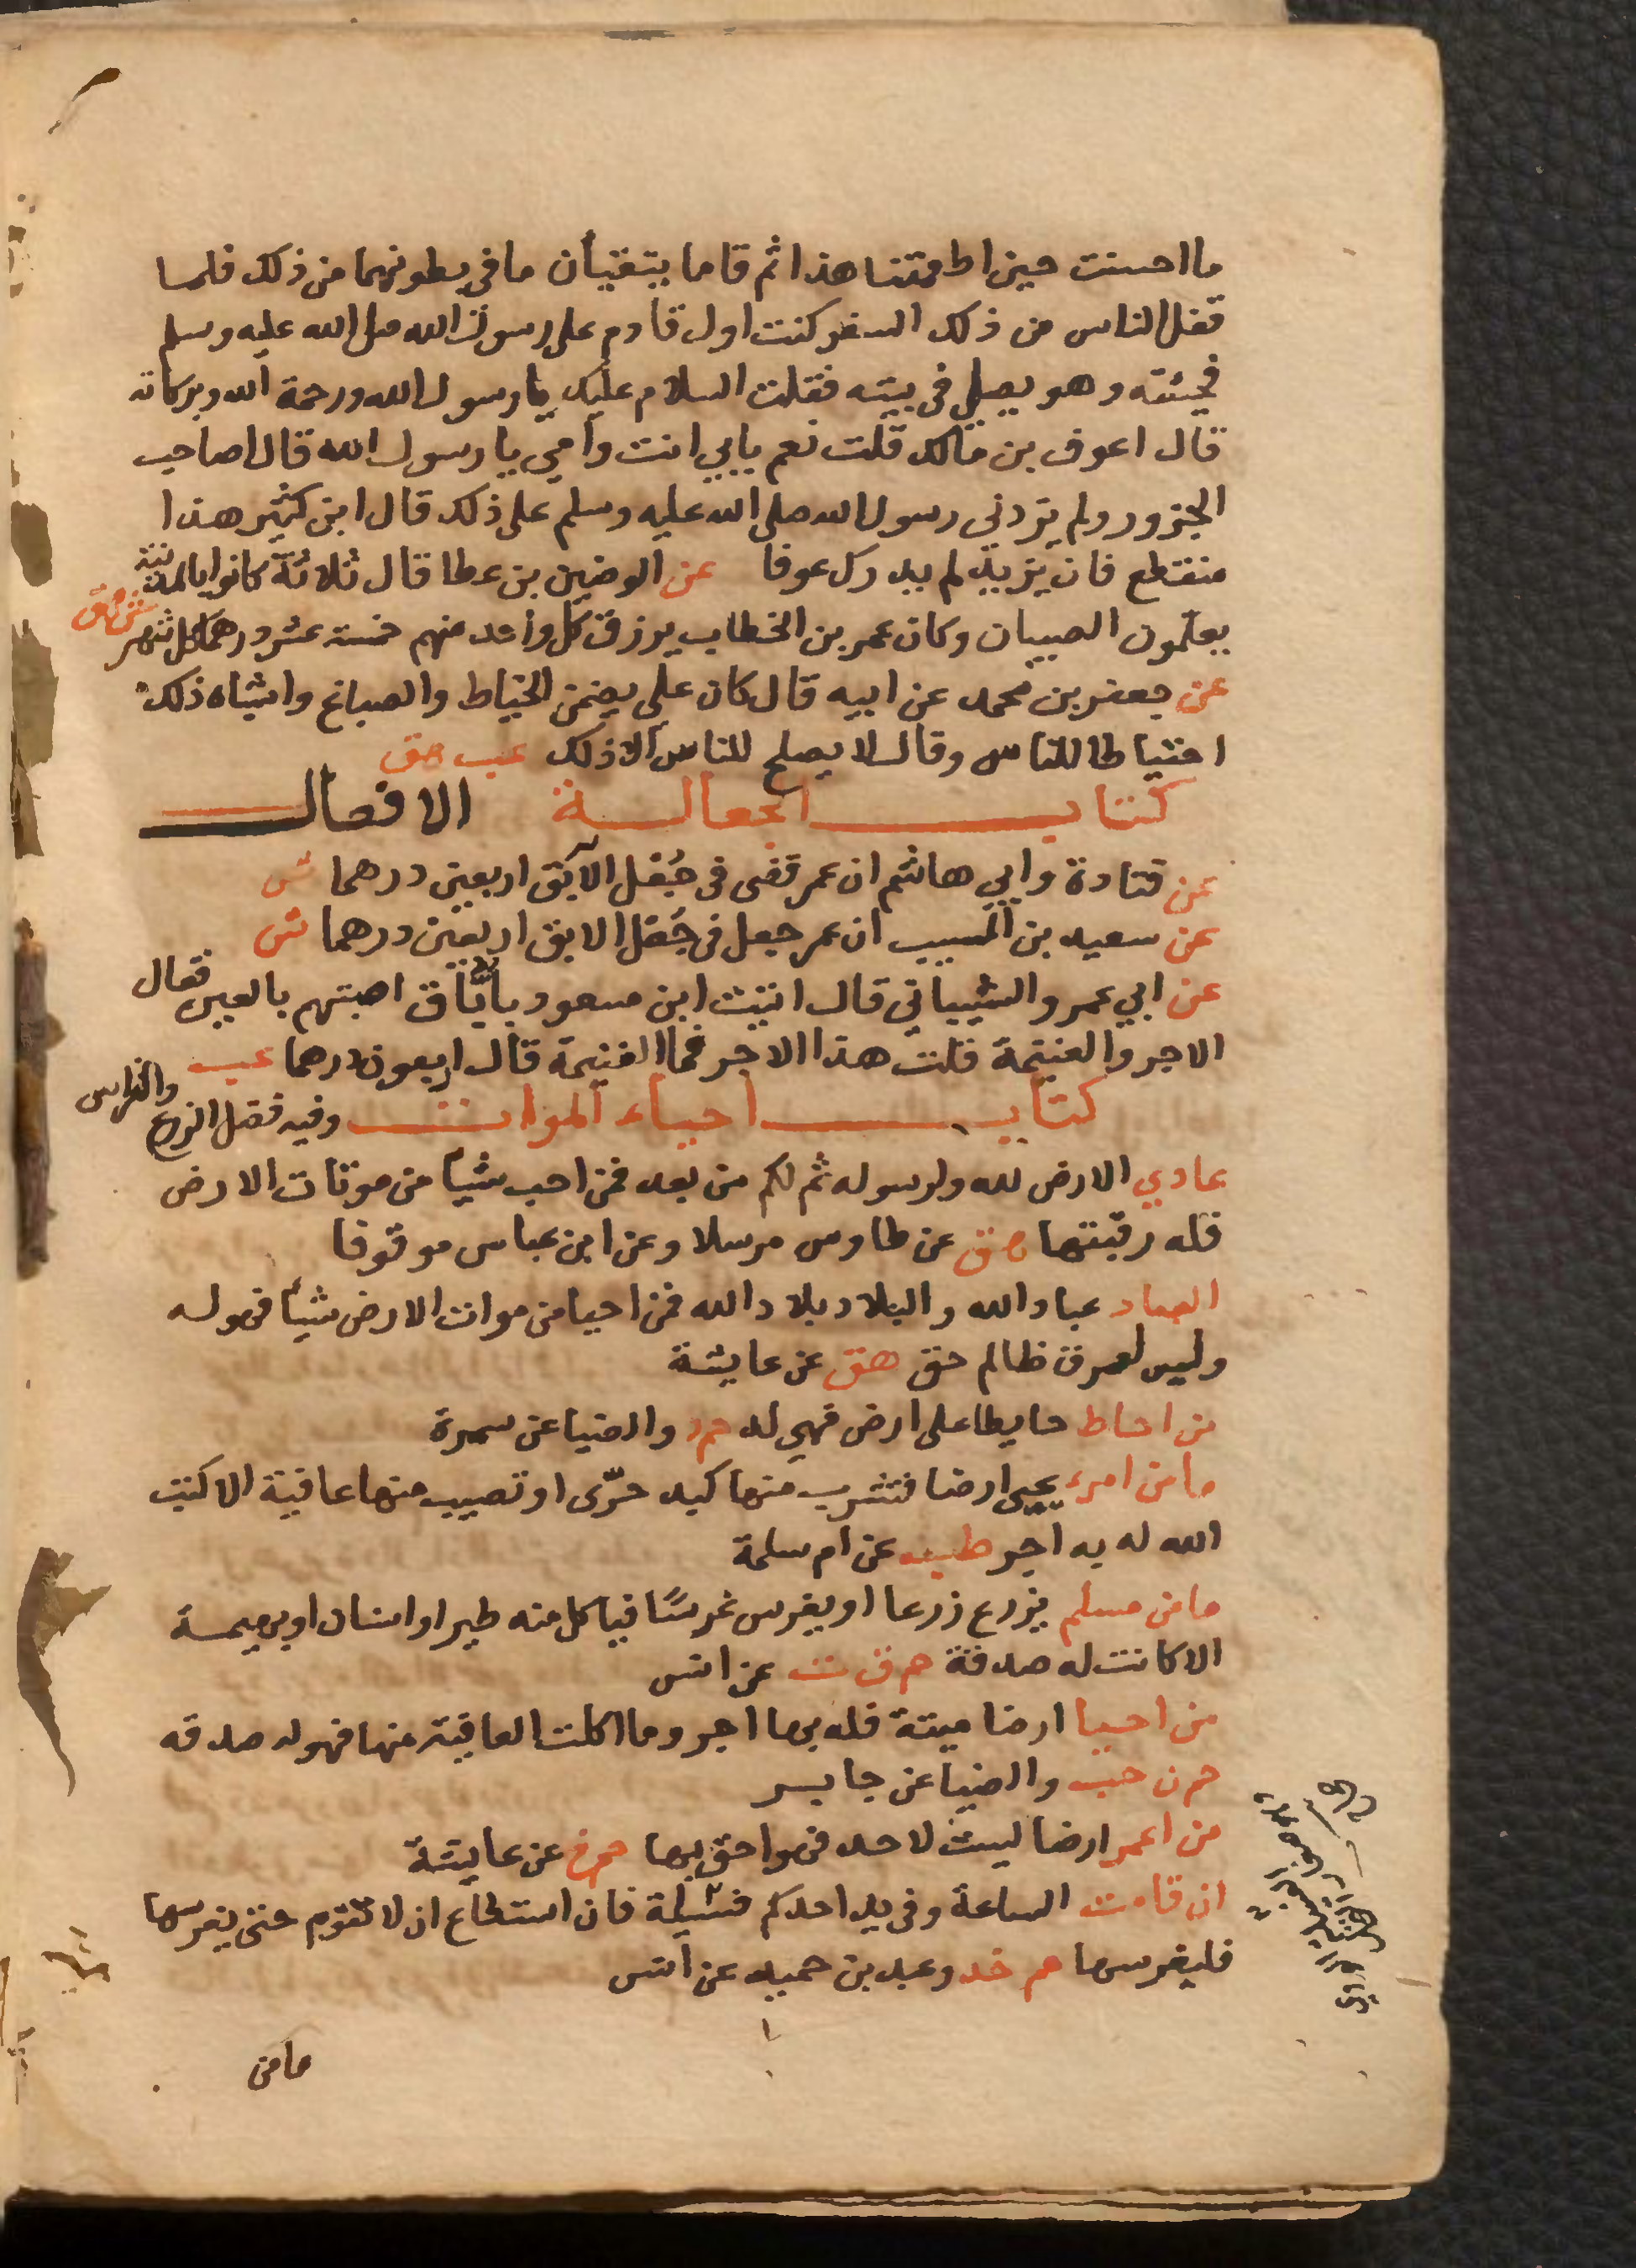 ما احسنت حين اطعمتنا هذا ثم قاما يتقيأن ما في بطونهما من ذلك فلما
قفل الناس من ذلك السفر كنت اول قادم على رسول الله صلى الله عليه وسلم
فجئته وهو يصلي في بيته فقلت السلام عليك يا رسول الله ورحمة الله وبركاته
قال اعوف بن مالك قلت نعم بابي انت وامي يا رسول الله قال اصاحب
الجزور ولم يزدني رسول الله صلى الله عليه وسلم على ذلك قال ابن كثير هذا
منقطع فان يزيد لم يدرك عوفا عن الوضين بن عطا قال ثلاثة كانوا بالمدينة
يعلمون الصبيان وكان عمر بن الخطاب يرزق كل واحد منهم خمسة عشر درهما كل شهر ش هق
عن جعفر بن محمد عن ابيه قال كان علي يضمن الخياط والصباغ واشباه ذلك
احتياطا للناس وقال لا يصلح للناس الا ذلك عب هق
كتاب الجعالة الافعال
عن قتادة وابي هاشم ان عمر قضى في جُعْل الآبق اربعين درهما ش
عن سعيد بن المسيب ان عمر جعل في جُعْل الابق اربعين درهما ش
عن ابي عمرو الشيباني قال اتيت ابن مسعود بأبَّاق اصبتهم بالعين فقال
الاجر والغنيمة قلت هذا الاجر فما الغنيمة قال اربعون درهما عب
كتاب احياء الموات وفيه فضل الزرع والغراس
عادي الارض لله ولرسوله ثم لكم من بعد فمن احب شيأ من موتات الارض
فله رقبتها هق عن طاوس مرسلا وعن ابن عباس موقوفا
العباد عباد الله والبلاد بلاد الله فمن احيا من موات الارض شيأ فهو له
وليس لعرق ظالم حق هق عن عايشة
من احاط حايطا على ارض فهي له حم د والضيا عن سمرة
ما من امرء يحيي ارضا فتشرب منها كبد حرّى او تصيب منها عافية الا كتب
الله له به اجر طب عن ام سلمة
ما من مسلم يزرع زرعا او يغرس غرسًا فياكل منه طير او انسان او بهيمة
الا كانت له صدقة حم ق ت عن انس
من احيا ارضا ميتة فله بها اجر وما اكلت العافية منها فهو له صدقه
حم ن حب والضيا عن جابر
من اعمر ارضا ليست لاحد فهو احق بها حم خ عن عايشة
ان قامت الساعة وفي يد احدكم فسيلة فان استطاع ان لا تقوم حتى يغرسها
فليغرسها حم خد وعبد بن حميد عن انس
ما من